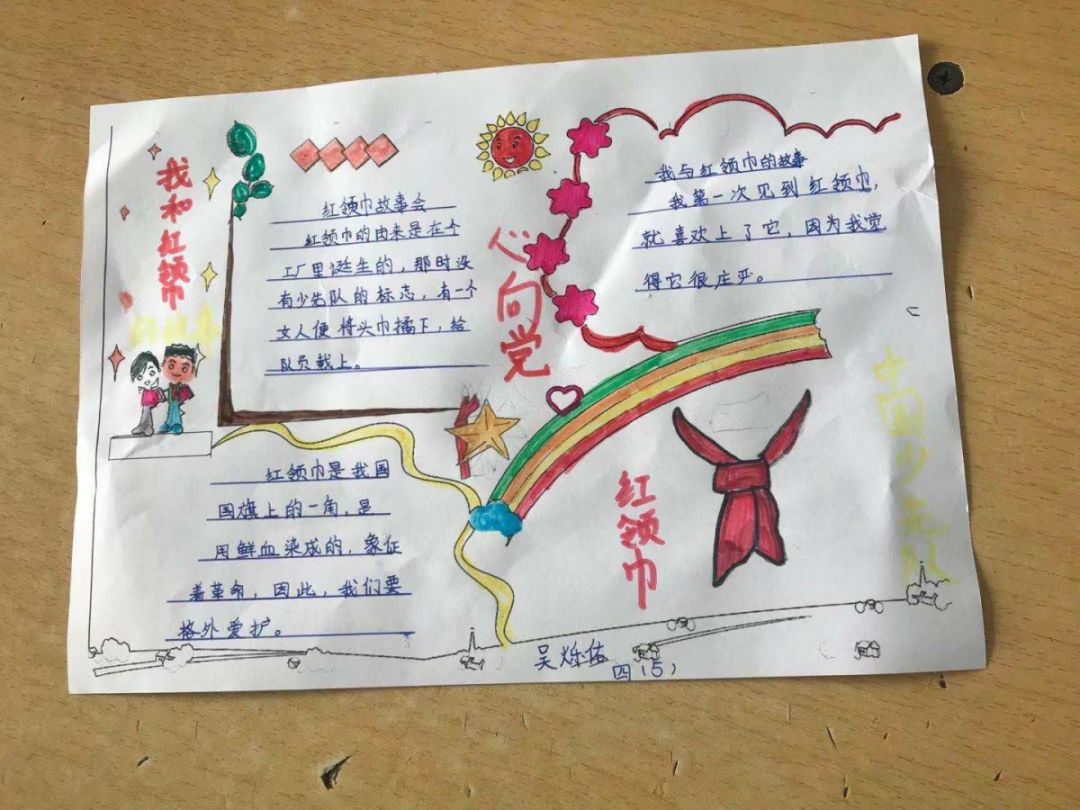 我和红领巾
红领巾故事会
红领巾的由来是在个
工厂里诞生的,那时没
有少先队的标志,有一个
女人便将头巾摘下,给
队员戴上。
心向党
我与红领巾的故事
我第一次见到红领巾,
就喜欢上了它,因为我觉
得它很庄严。
红领巾是我国
国旗上的一角,是
用鲜血染成的,象征
着革命,因此,我们要
格外爱护。
红领巾
中国少先队
吴烁佑
四(5)